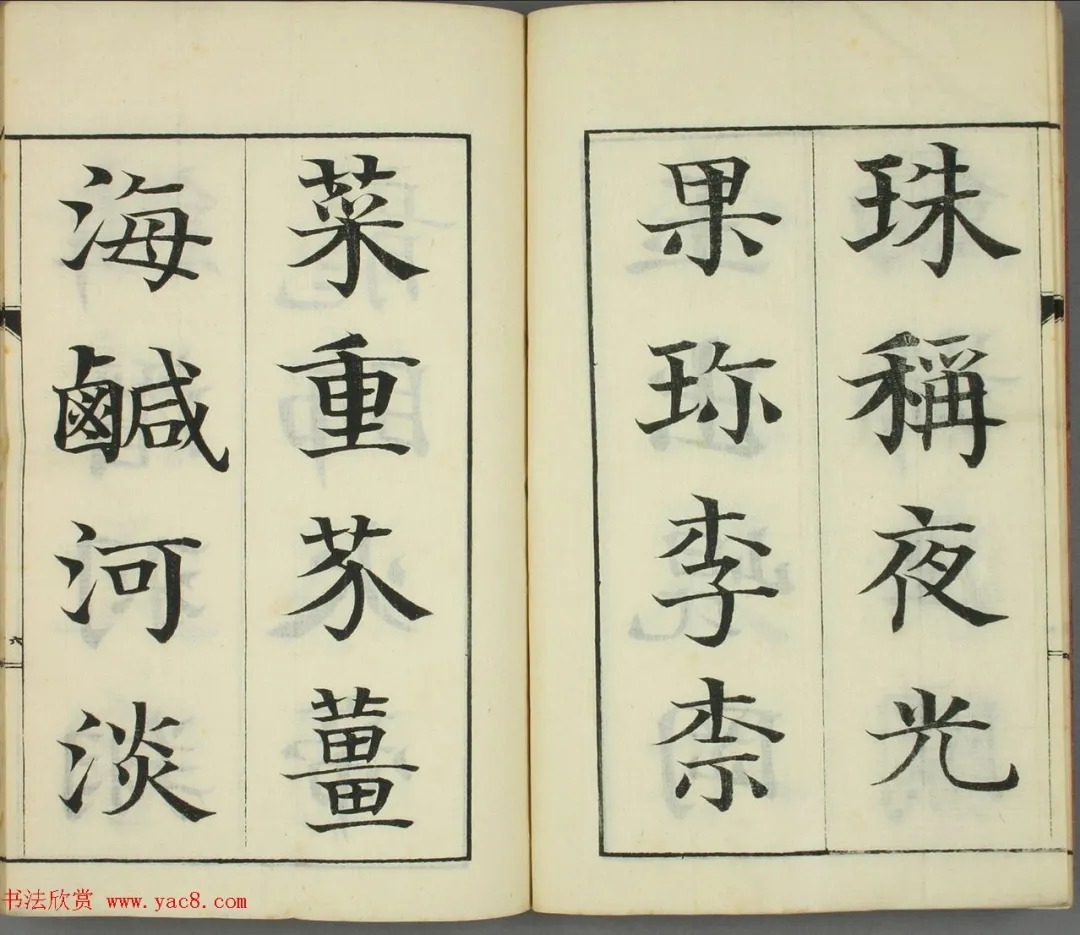 珠稱夜光
果珎李柰
菜重芥薑
海鹹河淡
六
书法欣赏 www.yac8.com